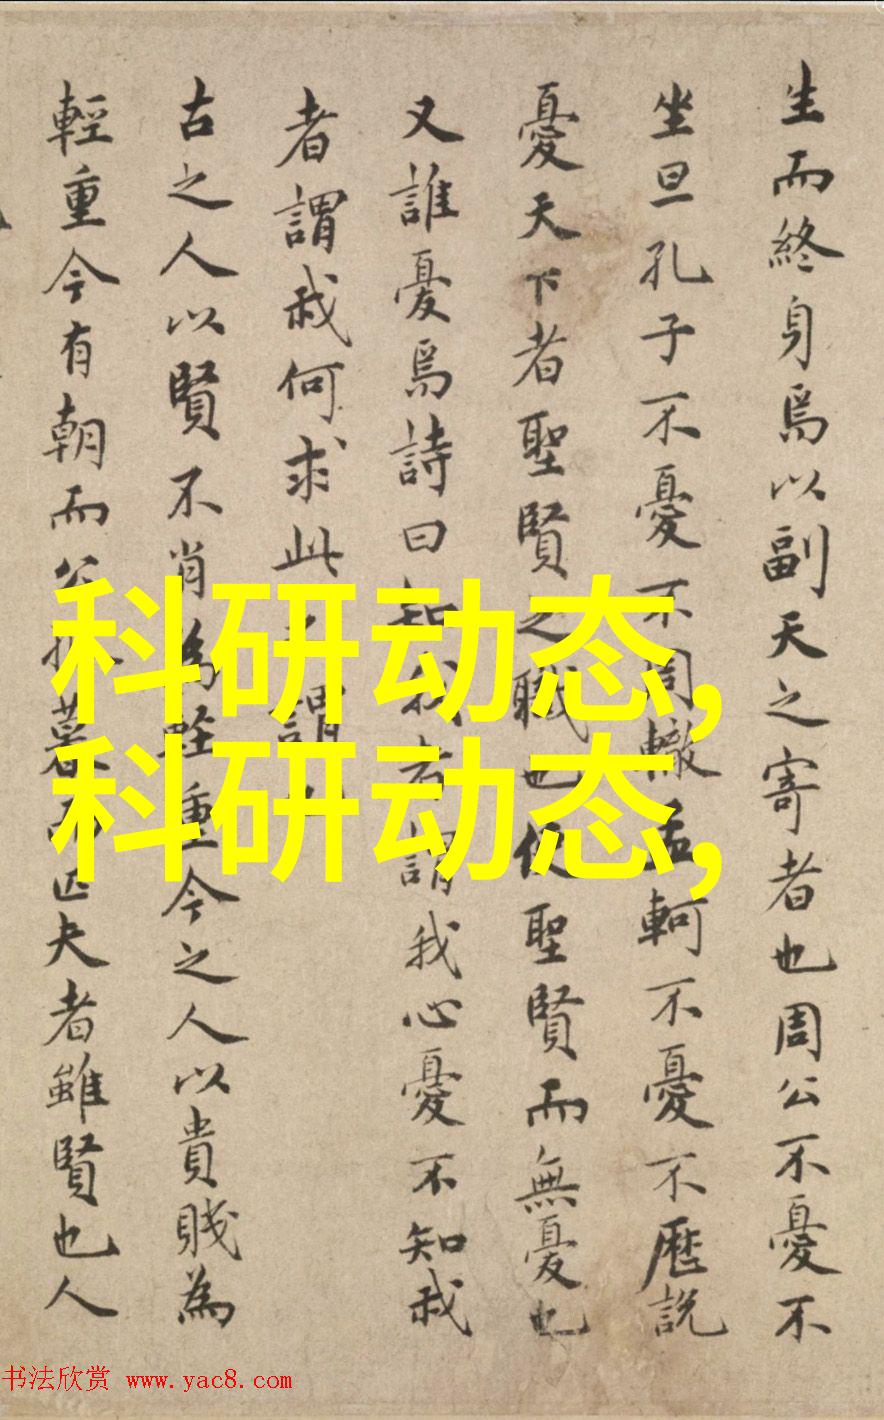 生而終身焉以副天之寄者也周公不憂不
坐旦孔子不憂不周轍孟軻不憂不歷說
憂天下者聖賢之職也使聖賢而無憂也
又誰憂焉詩曰知我者謂我心憂不知我
者謂我何求此之謂也
古之人以賢不肖為輕重今之人以貴賤為
輕重今有朝而公孤暮而匹夫者雖賢也人
科研动态,
科研动态,
书法欣赏 www.yac8.com